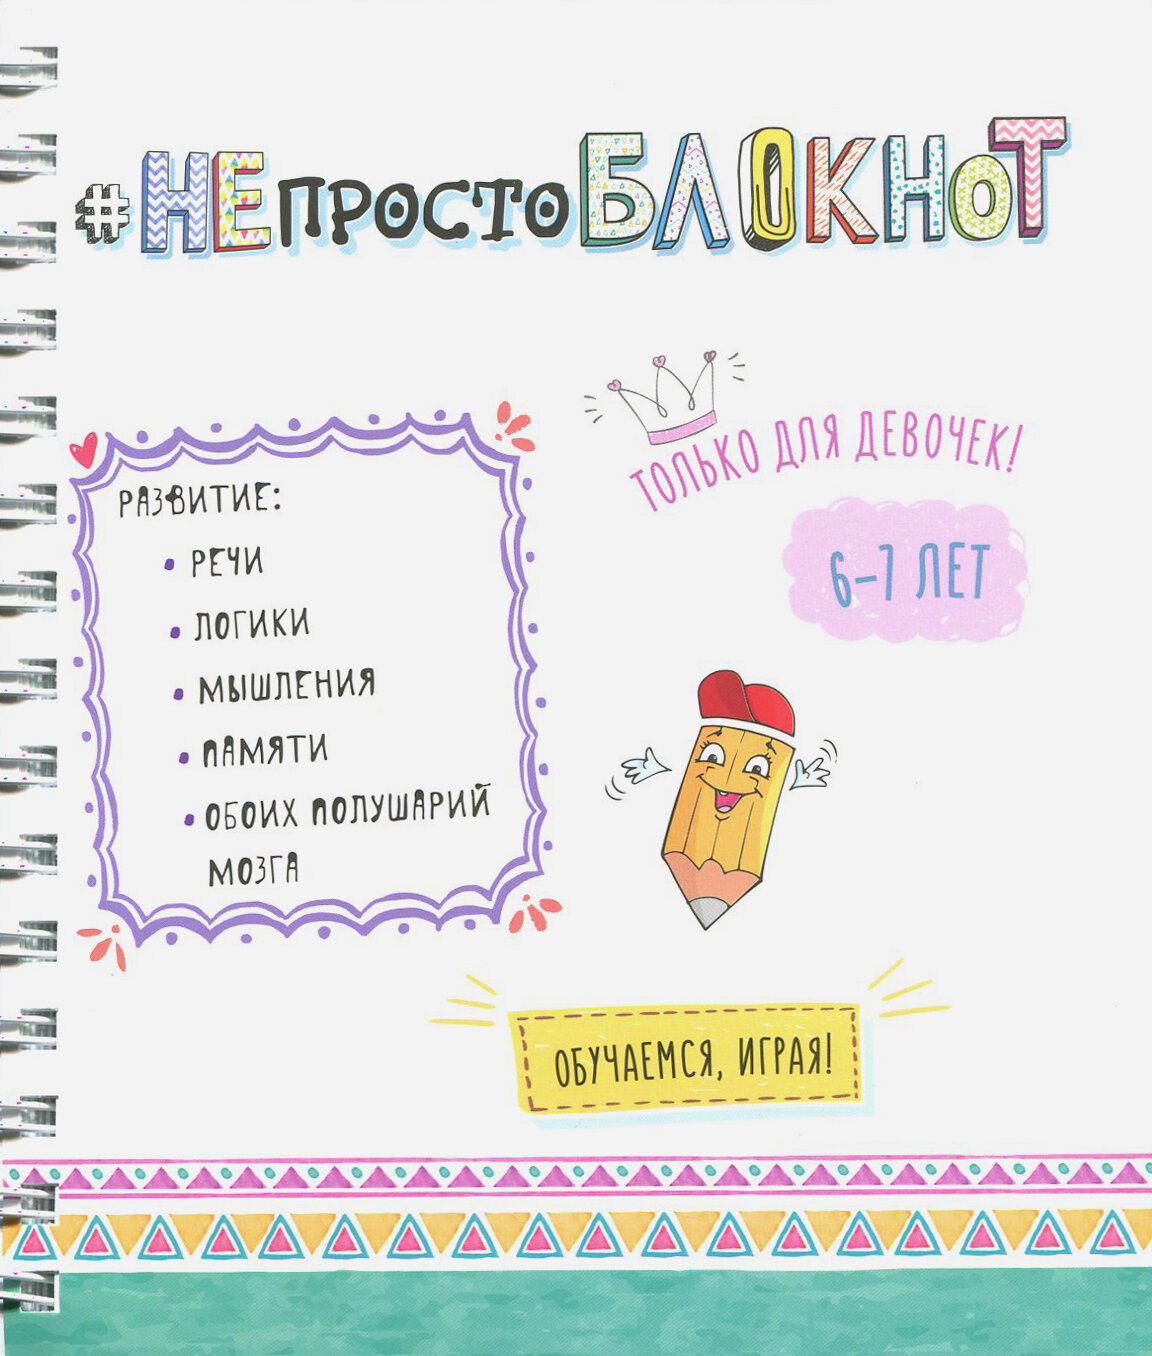 #НЕпростоБЛОКНоТ
ТОЛЬКО ДЛЯ ДЕВОЧЕК!
6-7 ЛЕТ
РАЗВИТИЕ:
• РЕЧИ
• ЛОГИКИ
• МЫШЛЕНИЯ
• ПАМЯТИ
• ОБОИХ ПОЛУШАРИЙ
МОЗГА
ОБУЧАЕМСЯ, ИГРАЯ!